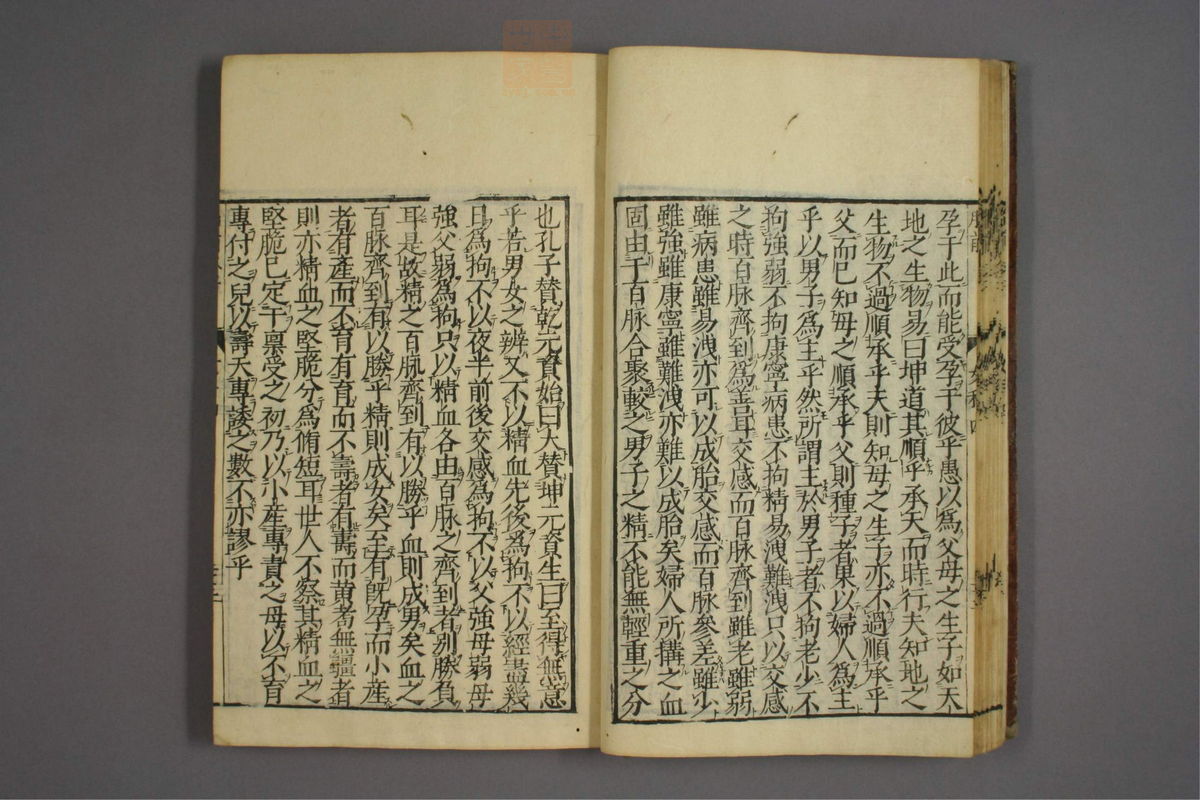 孕于此而能受孕于彼乎愚以爲父母之生子如天
地之生物易曰坤道其順乎承天而時行夫知地之
生物不過順承乎天則知母之生子亦不過順承乎
父而已知母之順承乎父則種子者果以婦人爲主
乎以男子爲主乎然所謂主於男子者不拘老少不
拘強弱不拘康寧病患不拘精易洩難洩只以交感
之時百脉齊到爲善耳交感而百脉齊到雖老雖弱
雖病患雖易洩亦可以成胎交感而百脉參差雖少
雖強雖康寧雖難洩亦難以成胎矣婦人所搆之血
固由于百脉合聚較之男子之精不能無輕重之分
也孔子賛乾元資始曰大賛坤元資生曰至得無意
乎若男女之辨又不以精血先後爲拘不以經盡幾
日爲拘不以夜半前後交感爲拘不以父強母弱母
強父弱爲拘只以精血各由百脉之齊到者別勝負
耳是故精之百脉齊到有以勝乎血則成男矣血之
百脉齊到有以勝乎精則成女矣至有旣孕而小產
者有產而不育有育而不壽者有壽而黄耇無疆者
則亦精血之堅脆分爲脩短耳世人不察其精血之
堅脆已定于禀受之初乃以小產專責之母以不育
專付之兒以壽夭專諉之數不亦謬乎